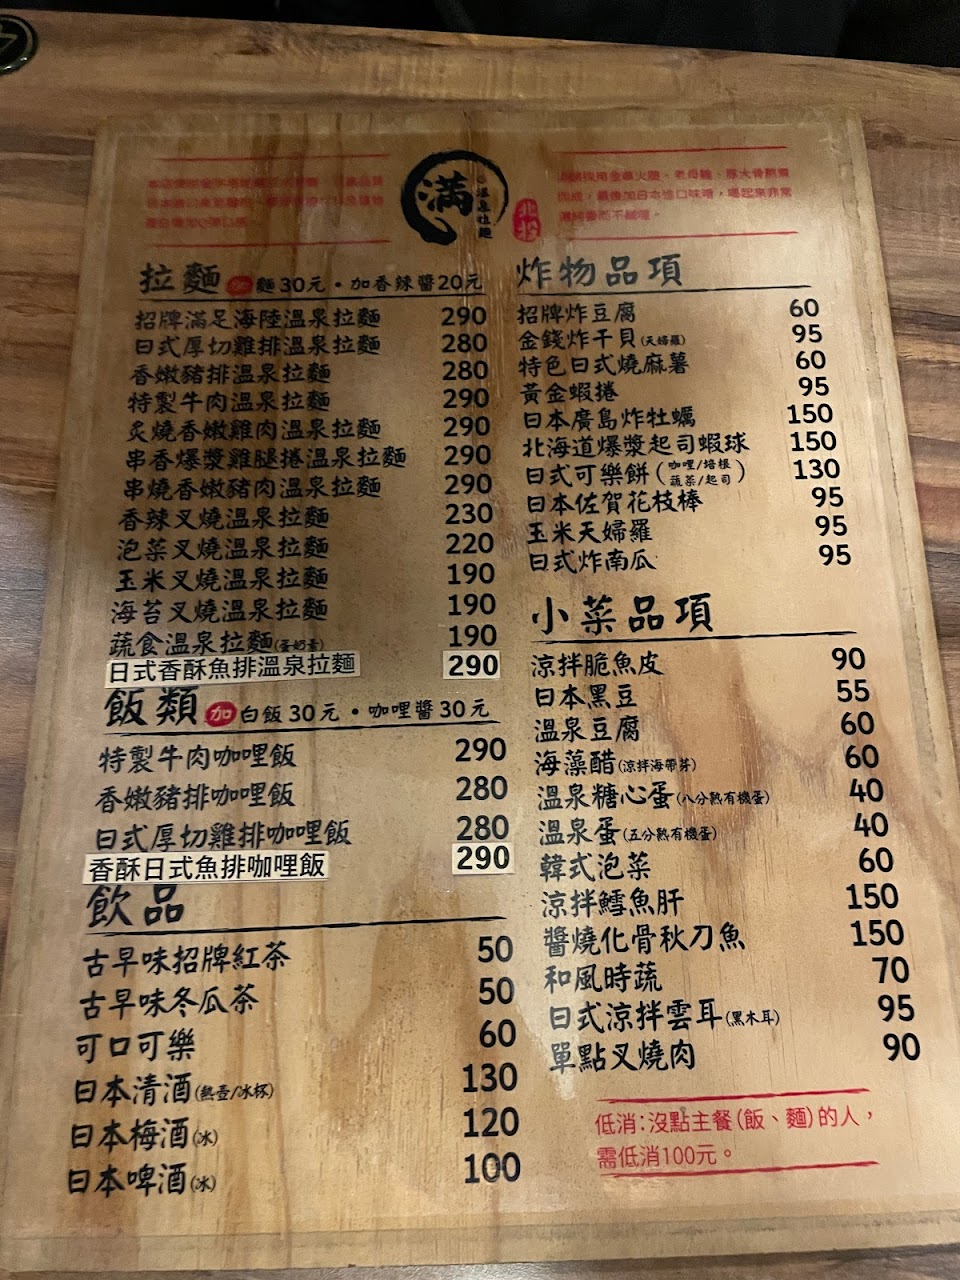 滿
溫泉拉麵
北投
採用金華火腿、老母雞、豚大骨熬製
最後加日本進口味噌，喝起來非常
拉麵 加 麵30元・加香辣醬20元
招牌滿足海陸溫泉拉麵 290
日式厚切雞排溫泉拉麵 280
香嫩豬排溫泉拉麵 280
特製牛肉溫泉拉麵 290
炙燒香嫩雞肉溫泉拉麵 290
串香爆漿雞腿捲溫泉拉麵 290
串燒香嫩豬肉溫泉拉麵 290
香辣叉燒溫泉拉麵 230
泡菜叉燒溫泉拉麵 220
玉米叉燒溫泉拉麵 190
海苔叉燒溫泉拉麵 190
蔬食溫泉拉麵(蛋奶素) 190
日式香酥魚排溫泉拉麵 290
飯類 加 白飯30元・咖哩醬30元
特製牛肉咖哩飯 290
香嫩豬排咖哩飯 280
日式厚切雞排咖哩飯 280
香酥日式魚排咖哩飯 290
飲品
古早味招牌紅茶 50
古早味冬瓜茶 50
可口可樂 60
日本清酒(熱壺/冰杯) 130
日本梅酒(冰) 120
日本啤酒(冰) 100
炸物品項
招牌炸豆腐 60
金錢炸干貝(天婦羅) 95
特色日式燒麻薯 60
黃金蝦捲 95
日本廣島炸牡蠣 150
北海道爆漿起司蝦球 150
日式可樂餅(咖哩/培根 蔬菜/起司) 130
日本佐賀花枝棒 95
玉米天婦羅 95
日式炸南瓜 95
小菜品項
涼拌脆魚皮 90
日本黑豆 55
溫泉豆腐 60
海藻醋(涼拌海帶芽) 60
溫泉糖心蛋(八分熟有機蛋) 40
溫泉蛋(五分熟有機蛋) 40
韓式泡菜 60
涼拌鱈魚肝 150
醬燒化骨秋刀魚 150
和風時蔬 70
日式涼拌雲耳(黑木耳) 95
單點叉燒肉 90
低消：沒點主餐(飯、麵)的人，
需低消100元。